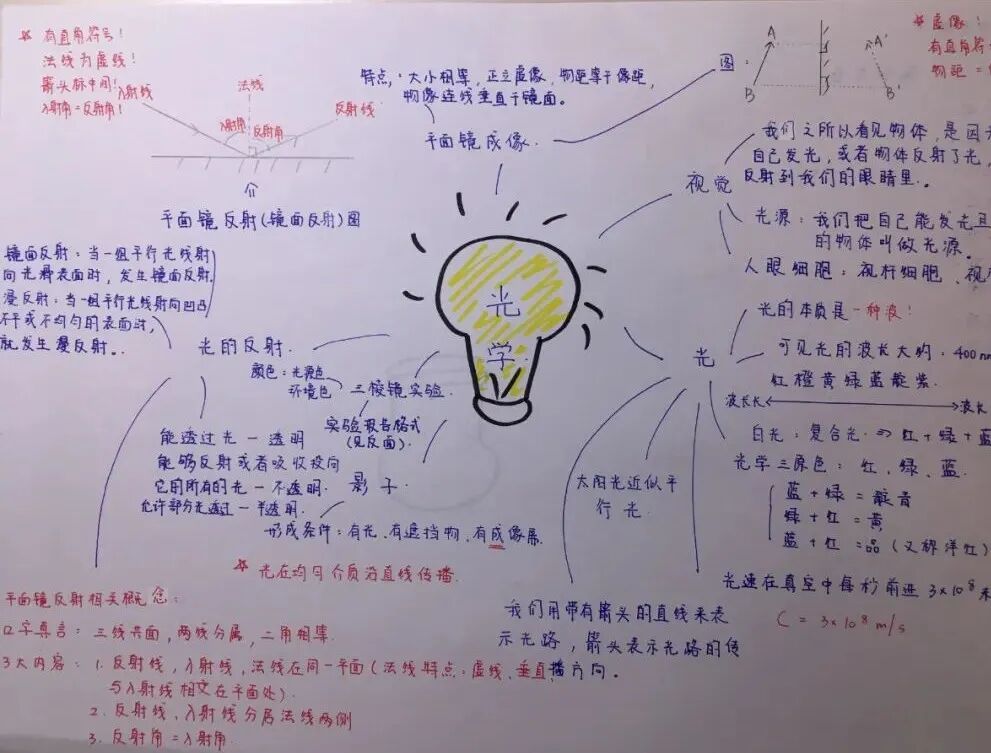 ☆ 有直角符号!
法线为虚线!
箭头标中间!
入射角=反射角!
入射线
法线
反射线
入射角
反射角
平面镜反射(镜面反射)图
特点:大小相等,正立虚像,物距等于像距,
物像连线垂直于镜面。
平面镜成像.
图:
A
B
A'
B'
☆ 虚像:
有直角符
物距=
视觉
我们之所以看见物体,是因
自己发光,或者物体反射了光,
反射到我们的眼睛里.。
光源:我们把自己能发光且
的物体叫做光源.
人眼细胞:视杆细胞、视
镜面反射:当一组平行光线射
向光滑表面时,发生镜面反射.
漫反射:当一组平行光线射向凹凸
不平或不均匀的表面时,
就发生漫反射。.
光的反射.
光
学.
颜色:光源色
环境色
三棱镜实验.
实验报告格式
(见反面).
能透过光一透明
能够反射或者吸收投向
它的所有的光一不透明.
允许部分光透过一半透明.
影子.
形成条件:有光、有遮挡物、有成像屏.
☆ 光在均匀介质沿直线传播.
光
光的本质是一种波!
可见光的波长大约:400nm
红橙黄绿蓝靛紫.
波长长
波长
白光:复合光⇒红+绿+蓝
光学三原色:红、绿、蓝.
蓝+绿=靛青
绿+红=黄
蓝+红=品(又称洋红)
光速在真空中每秒前进3×10⁸米
C = 3×10⁸ m/s
太阳光近似平
行光.
我们用带有箭头的直线来表
示光路,箭头表示光路的传
播方向。
平面镜反射相关概念:
口字真言:三线共面,两线分居,二角相等.
3大内容:1. 反射线,入射线,法线在同一平面(法线特点:虚线、垂直,
与入射线相交在平面处).
2. 反射线、入射线分居法线两侧
3. 反射角=入射角.